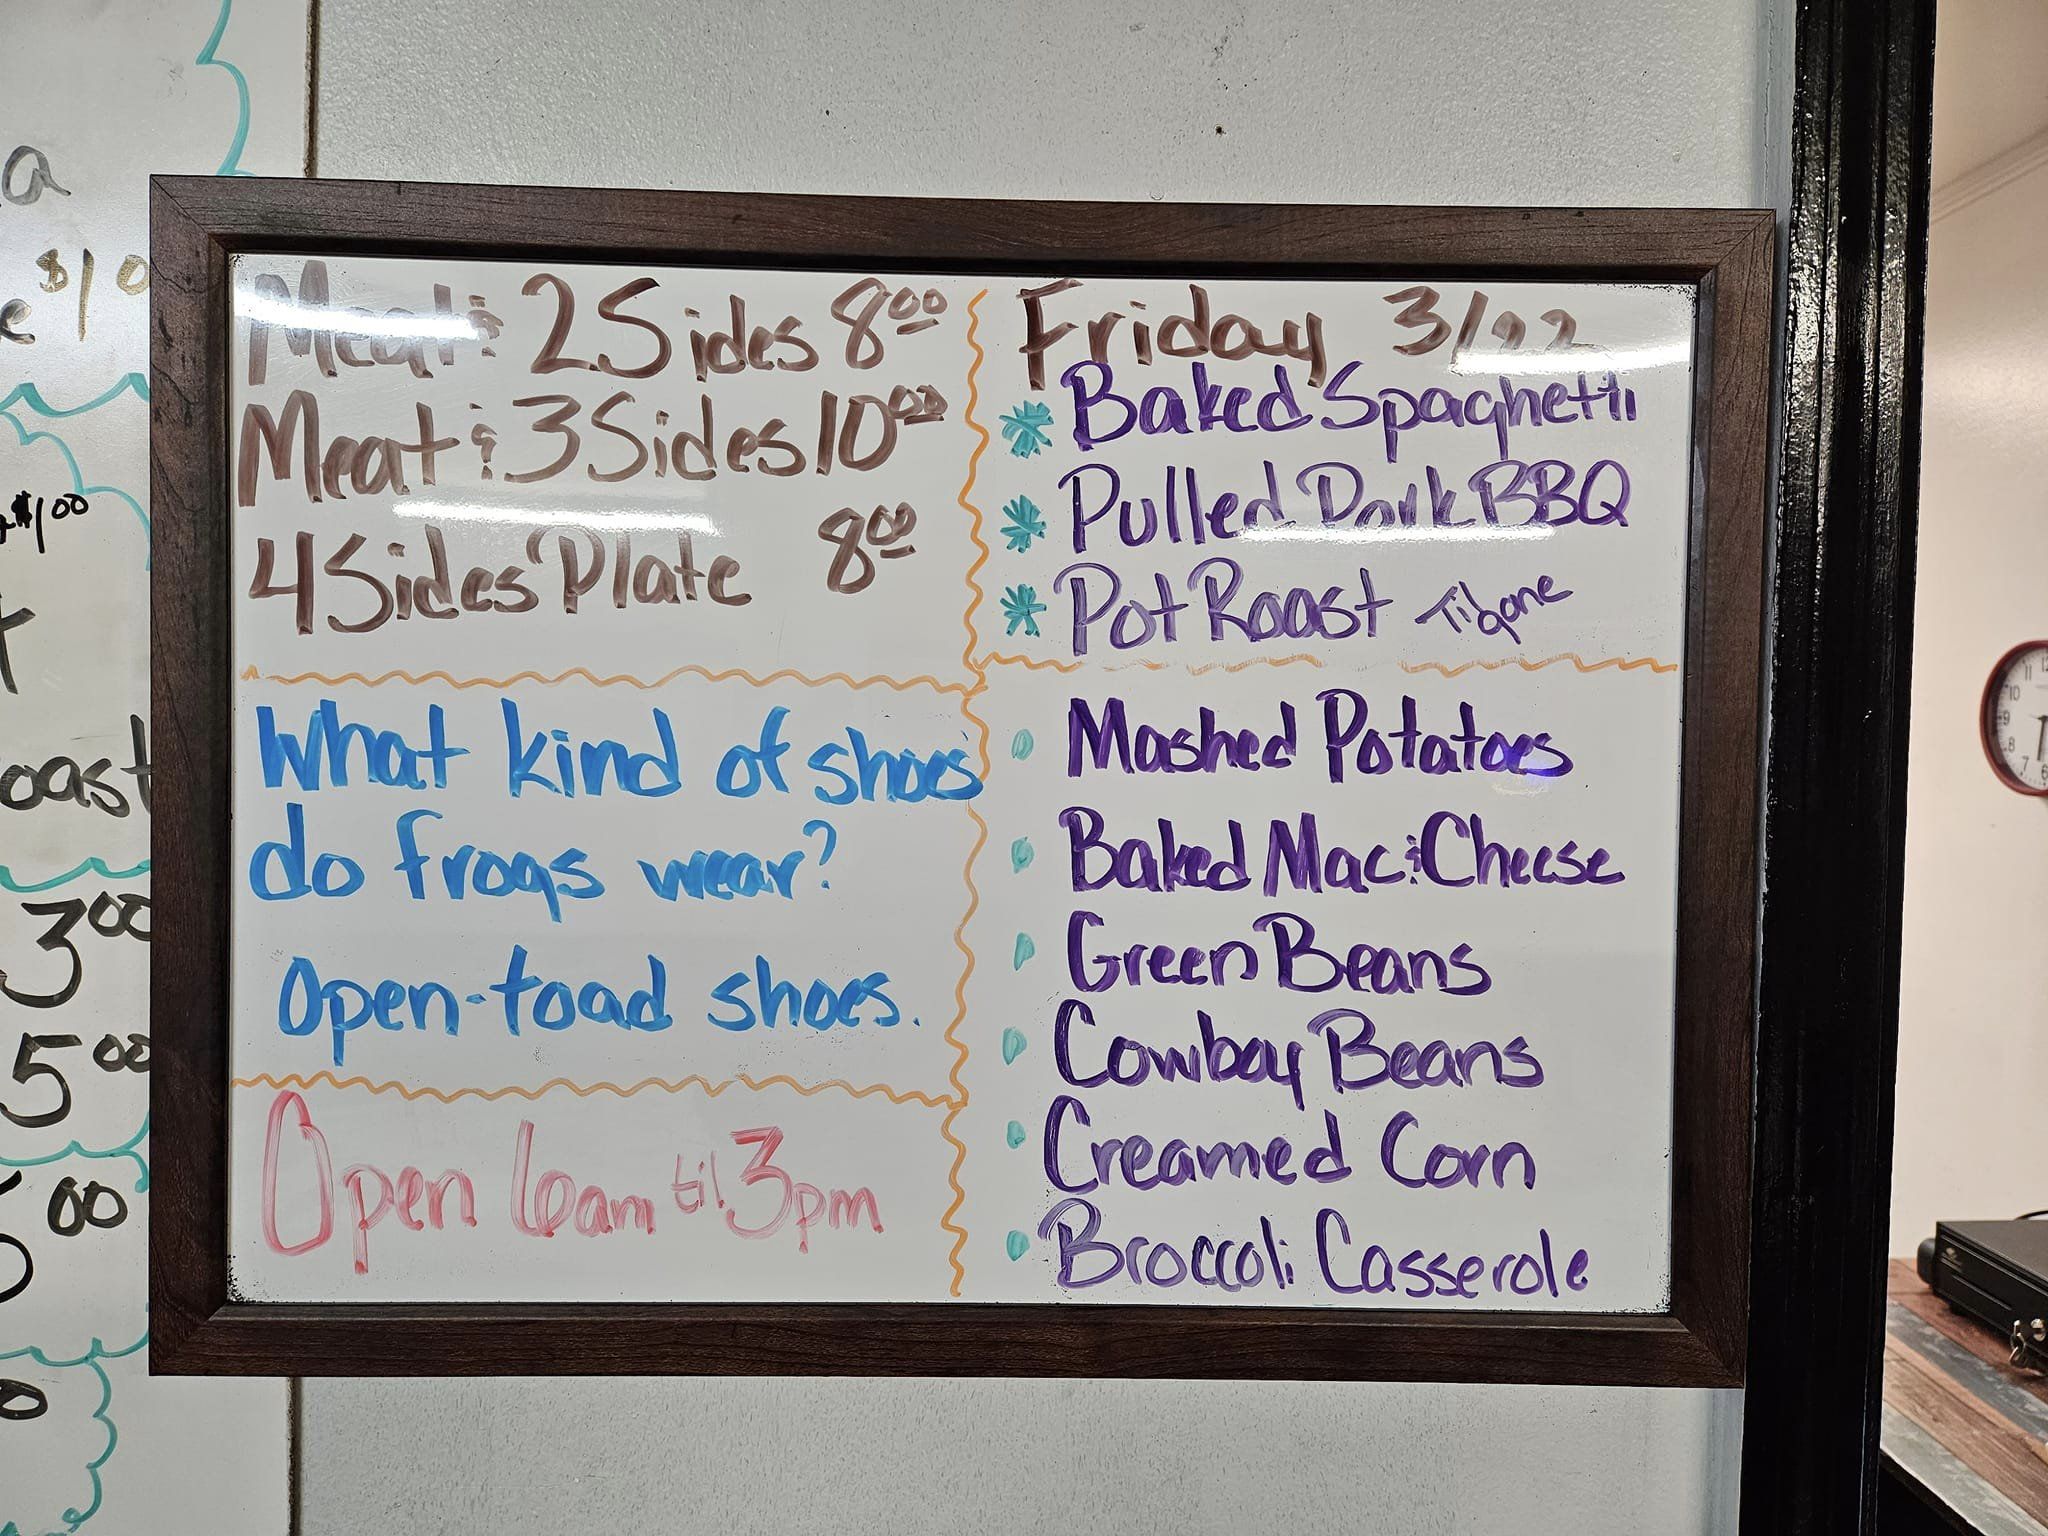 Meat & 2 Sides 8.00
Meat & 3 Sides 10.00
4 Sides Plate 8.00
What kind of shoes
do frogs wear?
Open-toad shoes.
Open 6am til 3pm
Friday 3/22
* Baked Spaghetti
* Pulled Pork BBQ
* Pot Roast Til gone
• Mashed Potatoes
• Baked Mac & Cheese
• Green Beans
• Cowboy Beans
• Creamed Corn
• Broccoli Casserole
$10
$1.00
oast
3.00
5.00